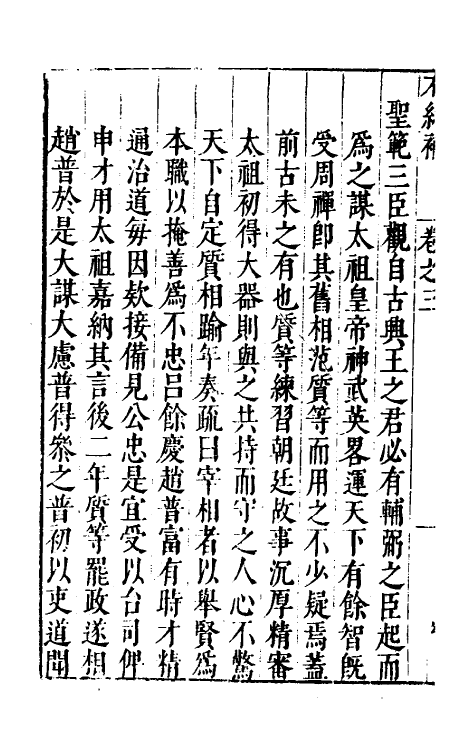 卷之三
聖範三臣觀自古興王之君必有輔弼之臣起而
爲之謀太祖皇帝神武英畧運天下有餘智旣
受周禪卽其舊相范質等而用之不少疑焉蓋
前古未之有也質等練習朝廷故事沉厚精審
太祖初得大器則與之共持而守之人心不驚
天下自定質相踰年奏疏曰宰相者以舉賢爲
本職以掩善爲不忠呂餘慶趙普富有時才精
通治道每因欵接備見公忠是宜受以台司俾
申才用太祖嘉納其言後二年質等罷政遂相
趙普於是大謀大慮普得叅之普初以吏道聞